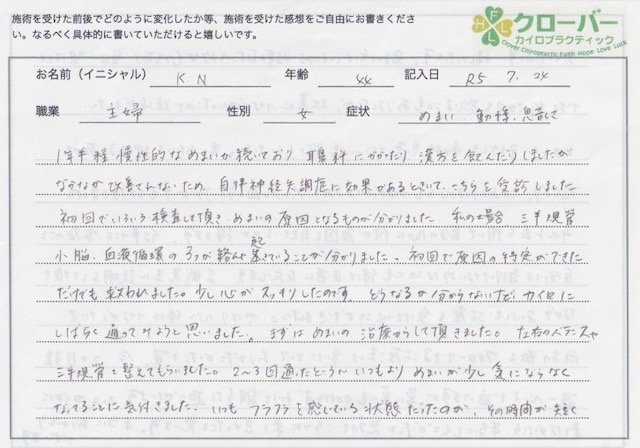 施術を受けた前後でどのように変化したか等、施術を受けた感想をご自由にお書きくださ
い。なるべく具体的に書いていただけると嬉しいです。
HFLL
クローバー
カイロプラクティック
Clover Chiropractic Faith Hope Love Luck
お名前（イニシャル） K.N 年齢 44 記入日 R5 7. 24
職業 主婦 性別 女 症状 めまい、動悸、息苦しさ
1年半程 慢性的なめまいが続いており 耳鼻科にかかったり 漢方を飲んだりしましたが
なかなか改善されないため、自律神経失調症に効果があるときいて、こちらを受診しました
初回でいろいろ検査して頂き、めまいの原因となるものが分かりました。私の場合 三半規管
小脳、血液循環の3つが絡んで起きていることが分かりました。初回で原因の特定ができた
だけでも救われました。少し心がスッキリしたのです。どうなるか分からないけど カイロに
しばらく通ってみようと思いました。まずはめまいの治療からして頂きました。左右のバランスや
三半規管を整えてもらいました。2〜3回通ったところで いつもより めまいが少し気にならなく
なってることに気付きました。いつも フラフラを感じている状態だったのが、その時間が短く